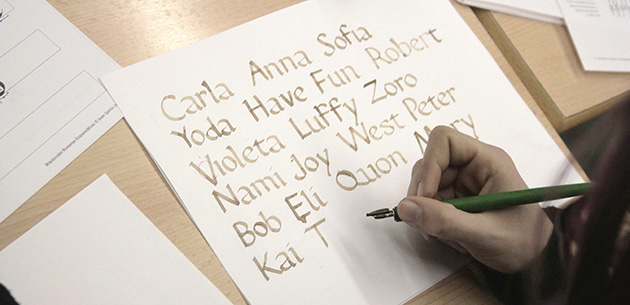 Carla Anna Sofia
Yoda Have Fun Robert
Violeta Luffy Zoro
Nami Joy West Peter
Bob Eli Quon Mary
Kai T